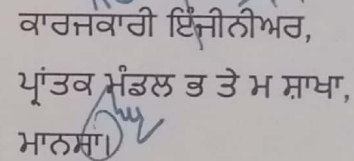 ਕਾਰਜਕਾਰੀ ਇੰਜੀਨੀਅਰ,
ਪ੍ਰਾਂਤਕ ਮੰਡਲ ਭ ਤੇ ਮ ਸ਼ਾਖਾ,
ਮਾਨਸਾ।